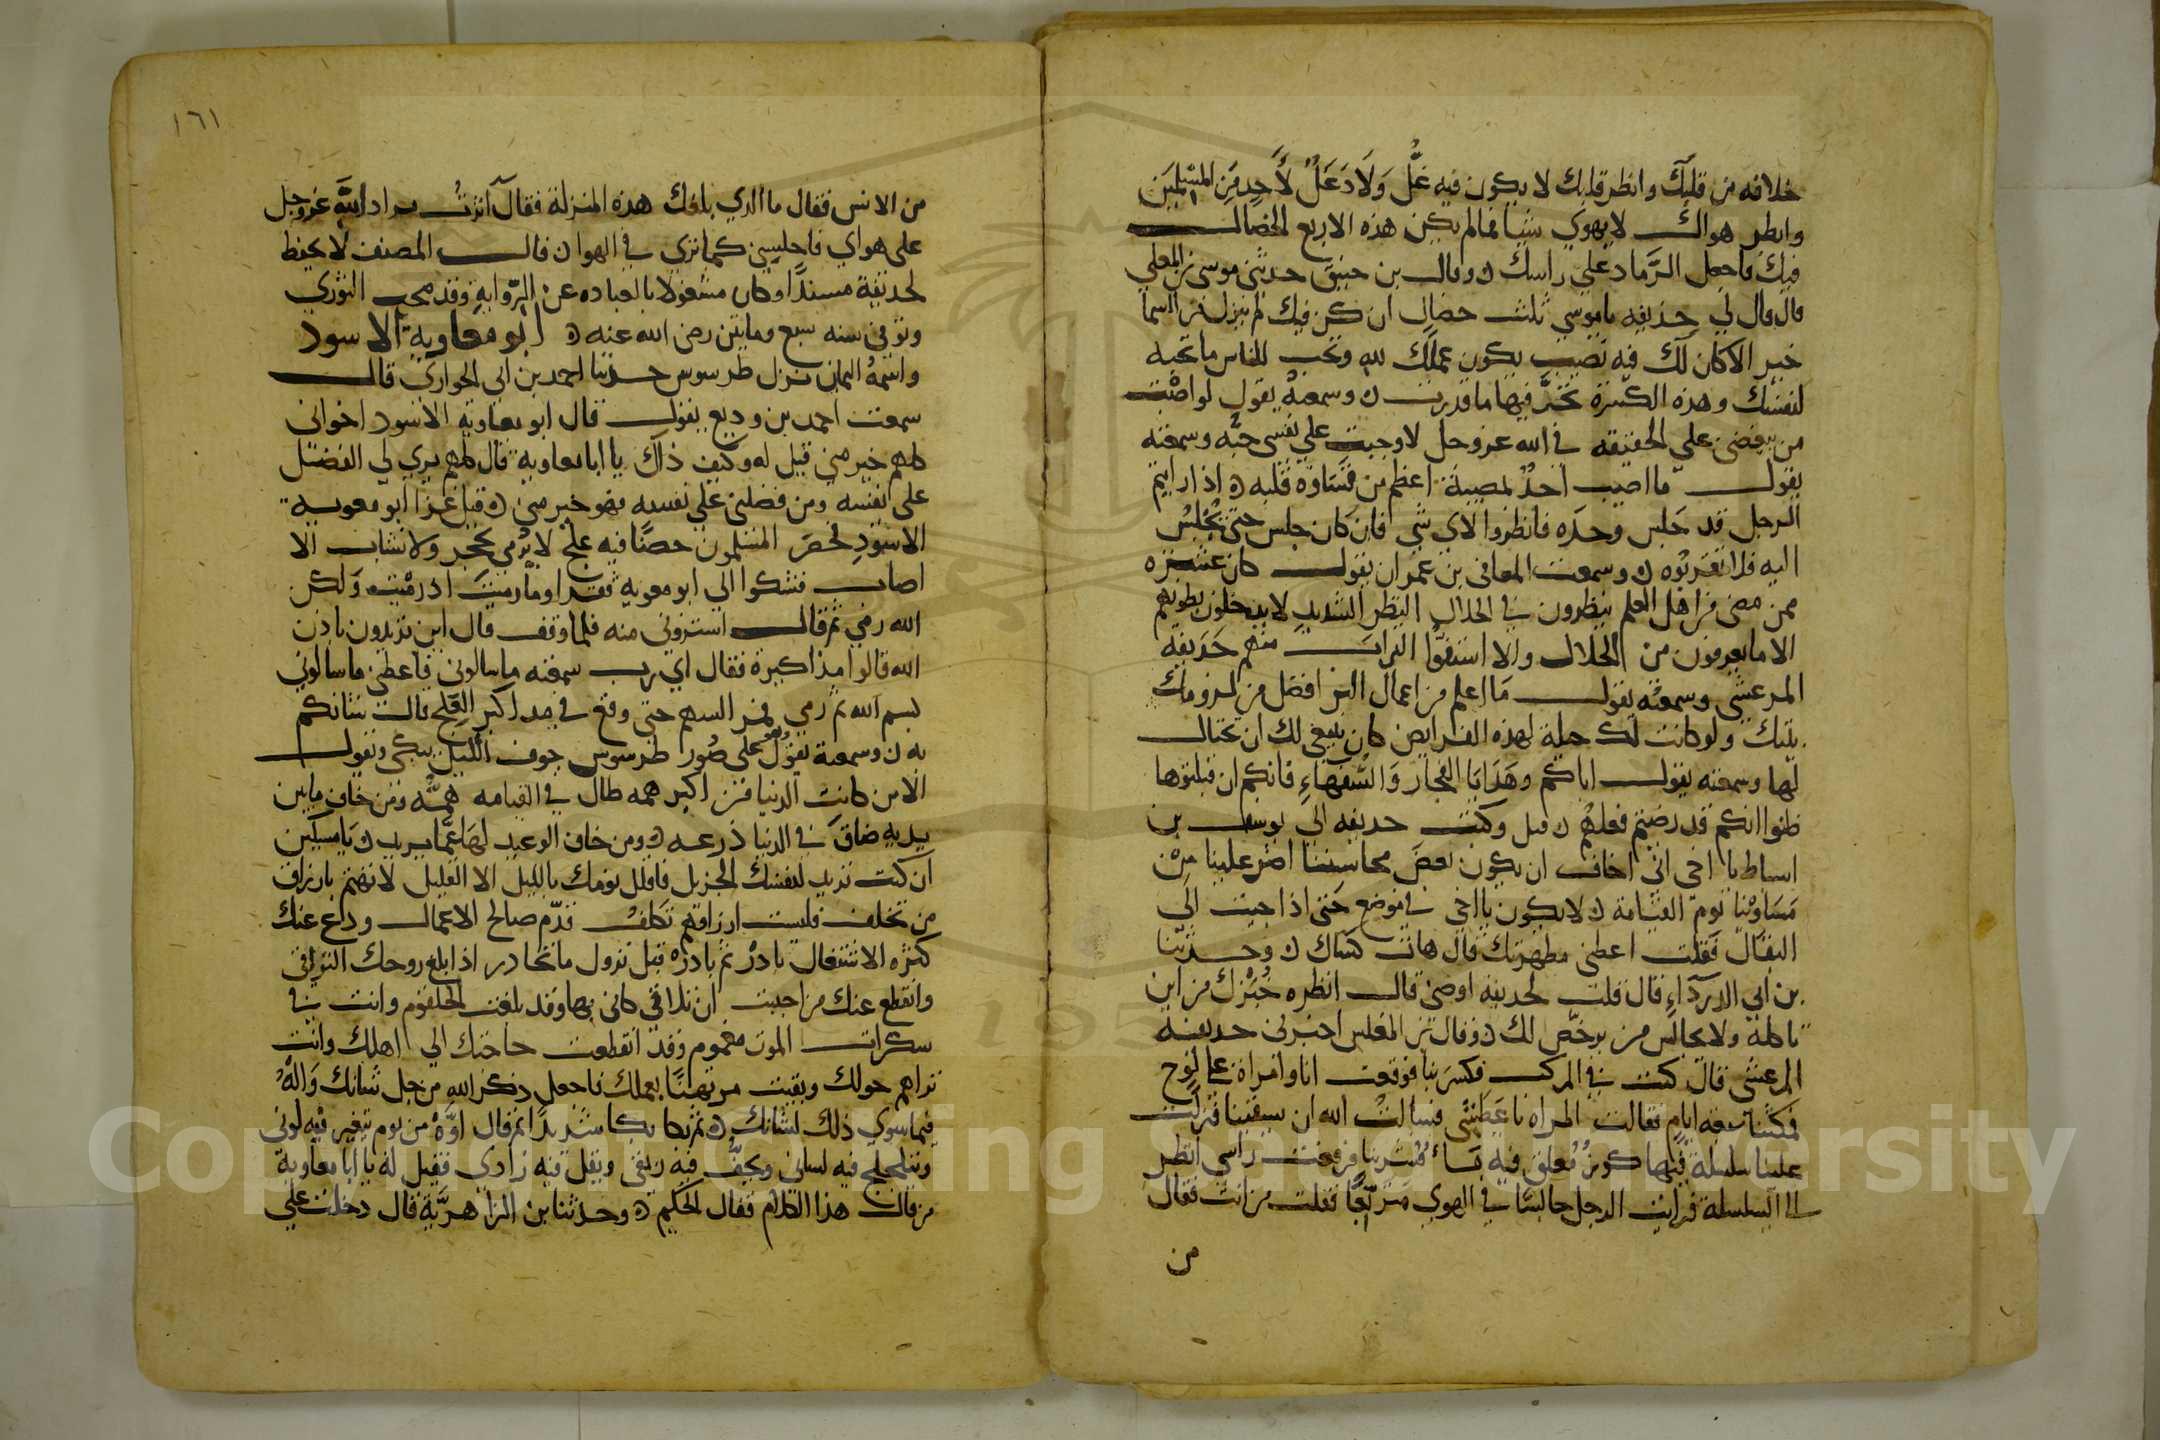 خلافه من قلبك وانظر قلبك لا يكون فيه غل ولا دغل لأحد من المسلمين
وانظر هواك لا يهوي شيا فما لم يكن هذه الاربع الخصال
فيك فاجعل الرماد علي راسك ن وقال بن خبيق حدثني موسى بن المعلي
قال قال لي حذيفه يا موسي ثلث خصال ان كن فيك لم ينزل من السما
خير الا كان لك فيه نصيب يكون عملك لله وتحب للناس ما تحبه
لنفسك وهذه الكسرة تحر فيها ما قدرت ن وسمعته يقول لو اصبت
من يبغضني علي الحقيقه في الله عز وجل لاوجبت علي نفسي حبه وسمعته
يقول ما اصيب احد بمصيبة اعظم من قساوة قلبه ن اذا رايتم
الرجل قد جلس وحده فانظروا لاي شي فان كان جلس حتى يجلس
اليه فلا تقربوه ن وسمعت المعافى بن عمران يقول كان عشرة
ممن مضى من اهل العلم ينظرون في الحلال النظر الشديد لا يدخلون بطونهم
الا ما يعرفون من الحلال والا استفوا التراب منهم حذيفه
المرعشي وسمعته يقول ما اعلم من اعمال البر افضل من لزومك
بيتك ولو كانت لك حيلة لهذه الفرايض كان ينبغي لك ان تحتال
لها وسمعته يقول اياكم وهدايا الفجار والسفهاء فانكم ان قبلتوها
ظنوا انكم قد رضيتم فعلهم ن قيل وكتب حذيفه الي يوسف بن
اسباط يا اخي اني اخاف ان يكون بعض محاسننا اضر علينا من
مساوئنا يوم القيامة ن لا يكون يا اخي في موضع حتى اذا جيت الي
البقال فقلت اعطني مطهرتك قال هات كساك ن وحدثنا
بن ابي الدرداء قال قلت لحذيفه اوصني قال انظر خبزك من اين
تاكله ولا تجالس من يرخص لك ن وقال بن المغلس اخبرني حذيفة
المرعشي قال كنت في المركب فكسر بنا فوقعت انا وامراة على لوح
فمكثنا سبعه ايام فقالت المراه انا عطشى فسالت الله ان يسقينا فنزلت
علينا سلسلة فيها كوز معلق فيه ماء فشربنا فرفعت راسي انظر
الى السلسلة فرايت الرجل جالسا في الهوي متربعا فقلت من انت فقال
من
١٦١
من الانس فقال ما الذي بلغك هذه المنزلة فقال آثرت مراد الله عز وجل
على هواي فاجلسني كما ترى في الهوا ن قال المصنف لا يحفظ
لحذيفة مسندا وكان مشغولا بالعباده عن الرواية وقد صحب الثوري
وتوفي سنه سبع ومايتين رضي الله عنه ن ابو معاوية الاسود
واسمه اليمان نزل طرسوس حدثنا احمد بن ابي الحواري قال
سمعت احمد بن وديع يقول قال ابو معاوية الاسود اخواني
كلهم خير مني قيل له وكيف ذاك يا ابا معاوية قال كلهم يري لي الفضل
على نفسه ومن فضلني علي نفسه فهو خير مني ن قيل غزا ابو معوية
الاسود فحضر المسلمون حصنا فيه علج لا يرمي بحجر ولا نشاب الا
اصاب فشكوا الي ابو معوية فقرا وما رميت اذ رميت ولكن
الله رمي ثم قال استروني منه فلما وقف قال اين تريدون باذن
الله قالوا مذاكيره فقال اي رب سمعته ما سالوني فاعطني ما سالوني
بسم الله ثم رمي فمر السهم حتى وقع في مذاكير العلج قال شانكم
به ن وسمعته يقول على سور طرسوس جوف الليل يبكي ويقول
الا من كانت الدنيا من اكبر همه طال في القيامه همه ومن خاف ما بين
يديه ضاق في الدنيا ذرعه ن ومن خاف الوعيد لها عما يريد ن يا مسكين
ان كنت تريد لنفسك الجزيل فاقلل نومك بالليل الا القليل لا تهتم بارزاق
من تخلف فلست ارزاقهم تكلف قدم صالح الاعمال ودع عنك
كثره الاشتغال بادر ثم بادر قبل نزول ما تحاذر اذا بلغ روحك التراقي
وانقطع عنك من احببت ان تلاقي كاني بها وقد بلغت الحلقوم وانت في
سكرات الموت مغموم وقد انقطعت حاجتك الي اهلك وانت
تراهم حولك وبقيت مرتهنا بعملك فاجعل ذكر الله من جل شانك واله
فيما سوي ذلك لسانك ن ثم بكا بكا شديدا ثم قال اوه من يوم يتغير فيه لوني
ويتلجلج فيه لساني ويجف فيه ريقي ويقل فيه زادي فقيل له يا ابا معاوية
من قال هذا الكلام فقال الحكيم ن وحدثنا بن الزاهرية قال دخلت علي